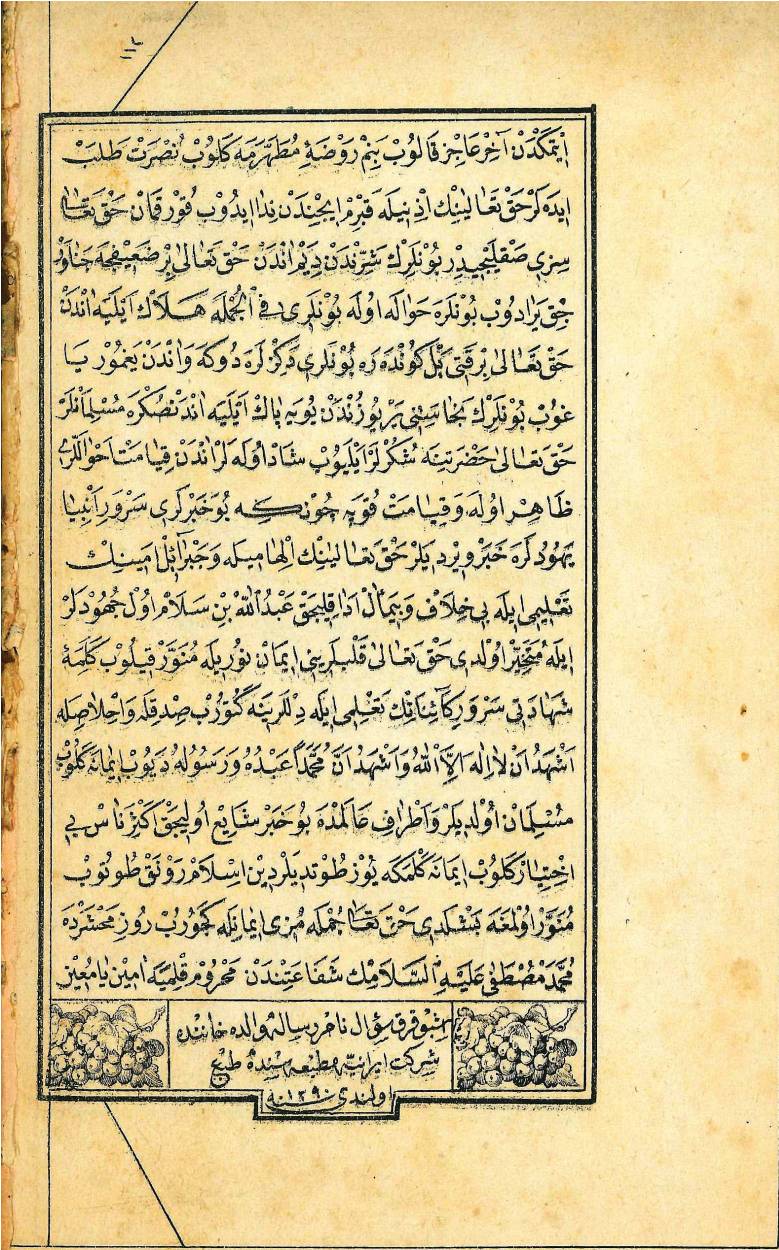 ١١٢
اِيتمَكدَنْ آخِرْ عَاجِزْ قَالُوبْ بَنِمْ رَوْضَهٔ مُطَهَّرَمَه كَلُوبْ نُصْرَتْ طَلَبْ
ايدَه لَرْ حَقْ تَعَالينِكْ اِذْنِيلَه قَبْرِمْ ايچِنْدَنْ نِدَا ايدُوبْ قُورْقمَانْ حَقْ تَعَالىٰ
سِزى صَقْلَيْيجيدِرْ بُونْلَرِكْ شَرِّنْدَنْ دَيَمْ اَنْدَنْ حَقْ تَعَالىٰ بِرْ ضَعِيفْجَه جَانَاوَرْ
جِقْ يَرَادُوبْ بُونْلَرَه حَوَالَه اُولَه بُونْلَرِى فِى الْجُمْلَه هَلَاكْ اَيْلَيَه اَنْدَنْ
حَقْ تَعَالىٰ بِرْ قَتِى يَلْ كُونْدَرَه بُونْلَرِى دَكِزْلَرَه دُوكَه وَاَنْدَنْ يَغْمُورْ يَا
غوُبْ بُونْلَرِكْ نَجَاسَتِنِى يَرْ يُوزُنْدَنْ يُويَه پَاكْ اَيْلَيَه اَنْدَنْصُكْرَه مُسْلِمَانْلَرْ
حَقْ تَعَالىٰ حَضْرَتِنَه شُكُرْلَرْ اَيْلَيُوبْ شَادْ اُولَه لَرْ اَنْدَنْ قِيَامَتْ اَحْوَاللَرِى
ظَاهِرْ اُولَه وَقِيَامَتْ قُوپَه چُونْكِه بُو خَبَرْلَرِى سَرْوَرِ اَنْبِيَا
يَهُودْلَرَه خَبَرْ وِيرْدِيلَرْ حَقْ تَعَالينِكْ اِلْهَامِيلَه وَجَبْرَائِلْ اَمِينِكْ
تَعْلِيمِى ايلَه بِى خِلَافْ وَبِيمَالْ اَدَا قِلِيجَقْ عَبْدُ اللّٰهْ بْنِ سَلَامْ اُولْ جُهُودْلَرْ
ايلَه مُتَحَيِّرْ اُولْدِى حَقْ تَعَالىٰ قَلْبلَرِينِى ايمَانْ نُورِيلَه مُنَوَّرْ قِيلُوبْ كَلِمَهٔ
شَهَادَتِى سَرْوَرِ كَآئِنَاتِكْ تَعْلِمِى ايلَه دِلْلَرِينَه كَتُورُبْ صِدْقلَه وَاخْلَاصِلَه
اَشْهَدُ اَنْ لَا اِلٰهَ اِلَّا اللّٰهُ وَاَشْهَدُ اَنَّ مُحَمَّدًا عَبْدُهُ وَرَسُولُهُ دَيُوبْ ايمَانَه كَلُوبْ
مُسْلِمَانْ اُولْدِيلَرْ وَاَطْرَافِ عَالَمْدَه بُو خَبَرْ شَايِعْ اُولِيجَقْ اَكْثَرْ نَاسْ بِى
اخْتِيَارْ كَلُوبْ ايمَانَه كَلْمَكَه يُوزْ طُوتْدِيلَرْ دِينِ اسْلَامْ رَوْنَقْ طُوتُوبْ
مُنَوَّرْ اُولْمَغَه بَشْلَدِى حَقْ تَعَالىٰ جُمْلَه مُزِى ايمَانِلَه كَچُورُبْ رُوزِ مَحْشَرْدَه
مُحَمَّدْ مُصْطَفٰى عَلَيْهِ السَّلَامِكْ شَفَاعَتِنْدَنْ مَحْرُومْ قِلْمَيَه اٰمِينْ يَا مُعِينْ
اشبو قرق سؤال نام رساله والده خاننده
شركت ايرانيه مطبعه سنده طبع
اولندى سنه ١٢٩٠